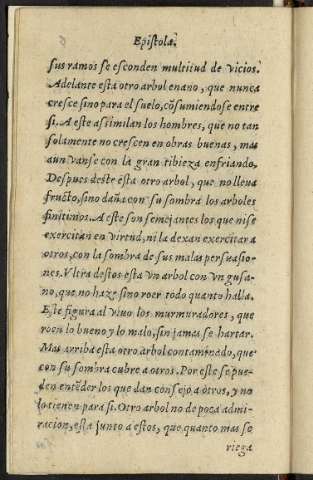 Epistola.
sus ramos se esconden multitud de vicios.
Adelante esta otro arbol enano, que nunca
cresce sino para el suelo, cõsumiendose entre
si. A este assimilan los hombres, que no tan
solamente no crescen en obras buenas, mas
aun vanse con la gran tibieza enfriando.
Despues deste esta otro arbol, que no lleva
fructo, sino daña con su sombra los arboles
finitimos. A este son semejantes los que ni se
exercitan en virtud, ni la dexan exercitar a
otros, con la sombra de sus malas persuasio-
nes. Vltra destos esta vn arbol con vn gusa-
no, que no haze sino roer todo quanto halla.
Este figura al viuo los murmuradores, que
roen lo bueno y lo malo, sin jamas se hartar.
Mas arriba esta otro arbol contaminado, que
con su sombra cubre a otros. Por este se pue-
den entẽder los que dan consejo a otros, y no
lo tienen para si. Otro arbol no de poca admi-
racion, esta junto a estos, que quanto mas se
riega